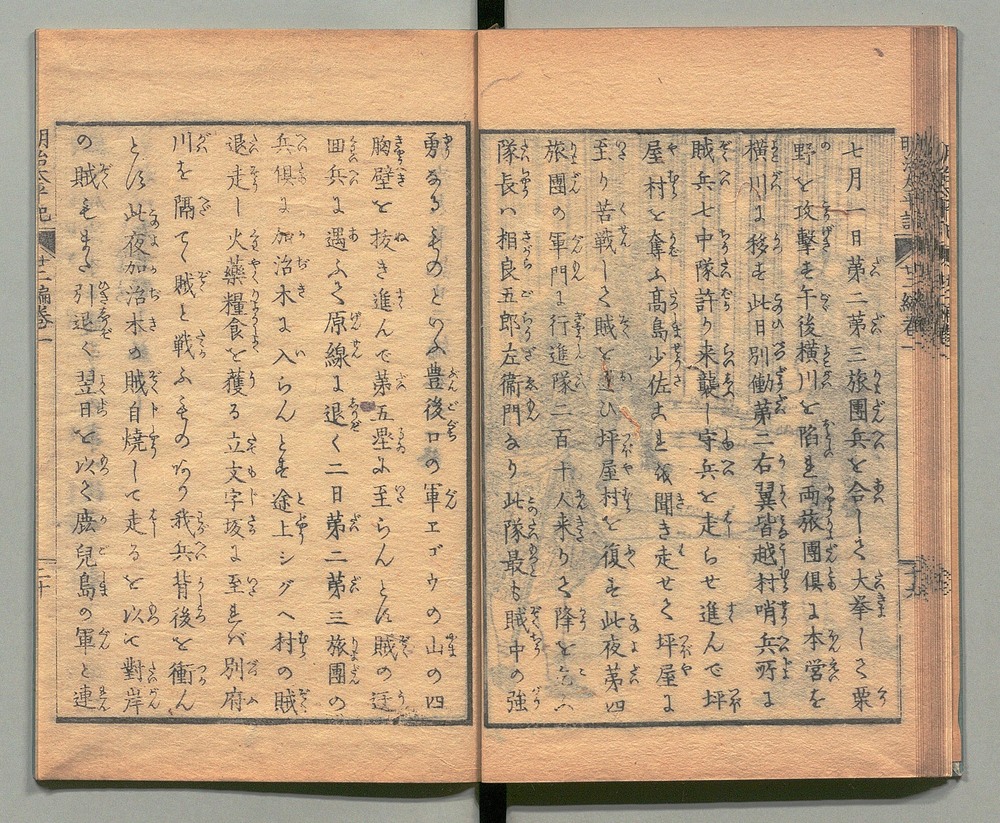 七月一日第二第三旅團兵を合して大挙して栗
野を攻撃す午後横川を陥る両旅團俱に本営を
横川に移す此日別働第二右翼皆越村哨兵所に
賊兵七中隊許り来襲し守兵を走らせ進んで坪
屋村を奪ふ髙島少佐これを聞き走せて坪屋に
至り苦戦して賊を追ひ坪屋村を復す此夜第四
旅團の軍門に行進隊二百十人来りて降を乞ふ
隊長ハ相良五郎左衛門なり此隊最も賊中の強
勇なるものといふ豊後口の軍ヱゴウの山の四
胸壁を抜き進んで第五壘に至らんとす賊の迂
回兵に遇ふて原線に退く二日第二第三旅團の
兵俱に加治木に入らんとす途上シグヘ村の賊
退走し火藥糧食を獲る立文字坂に至れバ別府
川を隔てゝ賊と戦ふものあり我兵背後を衝ん
とす此夜加治木の賊自焼して走るを以て對岸
の賊もまた引退く翌日を以て鹿兒島の軍と連
明治太平記
廿二編卷一
二十